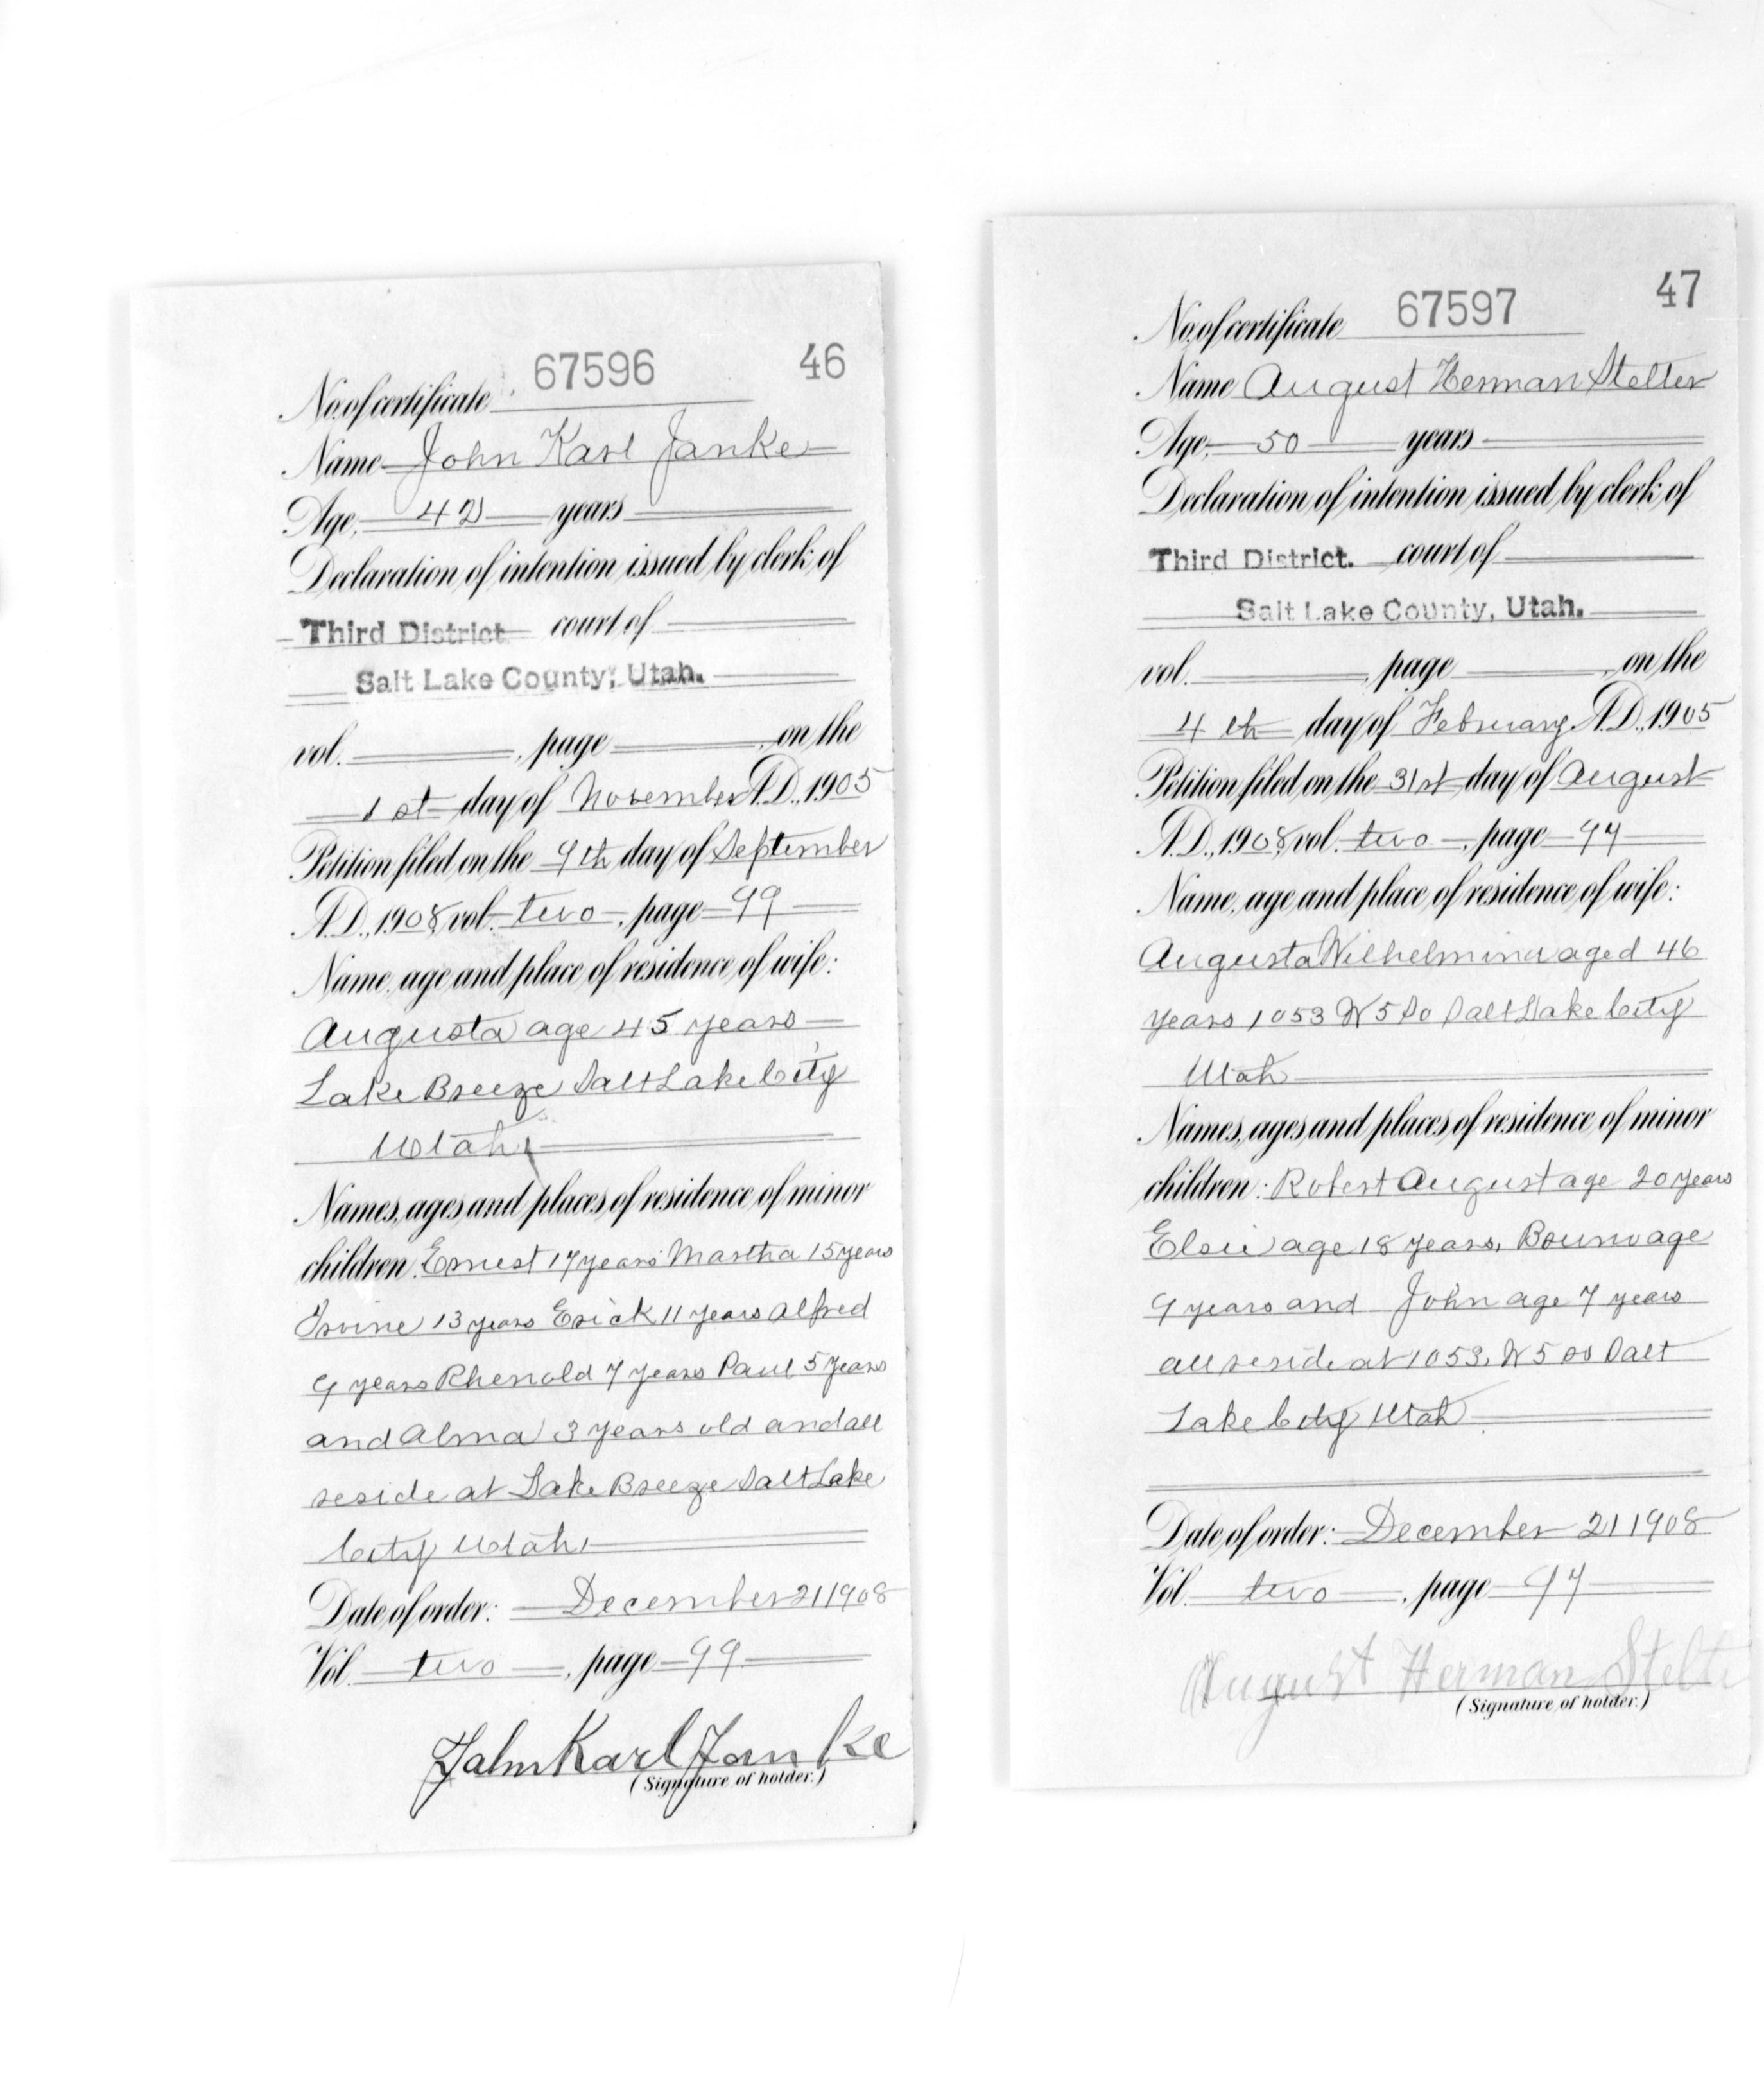 No. of certificate 67596 46
Name John Karl Janke
Age, 42 years
Declaration of intention issued by clerk of
Third District court of
Salt Lake County, Utah.
vol. , page , on the
1st day of November A.D., 1905
Petition filed on the 9th day of September
A.D., 1908, vol. two, page 99
Name, age and place of residence of wife:
Augusta age 45 years
Lake Breeze Salt Lake City
Utah
Names, ages and places of residence of minor
children. Ernest 17 years Martha 15 years
Irvine 13 years Erick 11 years Alfred
9 years Rhenold 7 years Paul 5 years
and Alma 3 years old and all
reside at Lake Breeze Salt Lake
City Utah
Date of order: December 21 1908
Vol. two, page 99
John Karl Janke
(Signature of holder.)
No. of certificate 67597 47
Name August Herman Stelter
Age, 50 years
Declaration of intention issued by clerk of
Third District. court of
Salt Lake County, Utah.
vol. , page , on the
4th day of February A.D., 1905
Petition filed on the 31st day of August
A.D., 1908, vol. two, page 97
Name, age and place of residence of wife:
Augusta Wilhelmina aged 46
years 1053 W 5 So Salt Lake City
Utah
Names, ages and places of residence of minor
children: Robert August age 20 years
Elsie age 18 years, Bruno age
9 years and John age 7 years
all reside at 1053, W 5 So Salt
Lake City Utah
Date of order: December 21 1908
Vol. two, page 97
August Herman Stelte
(Signature of holder.)